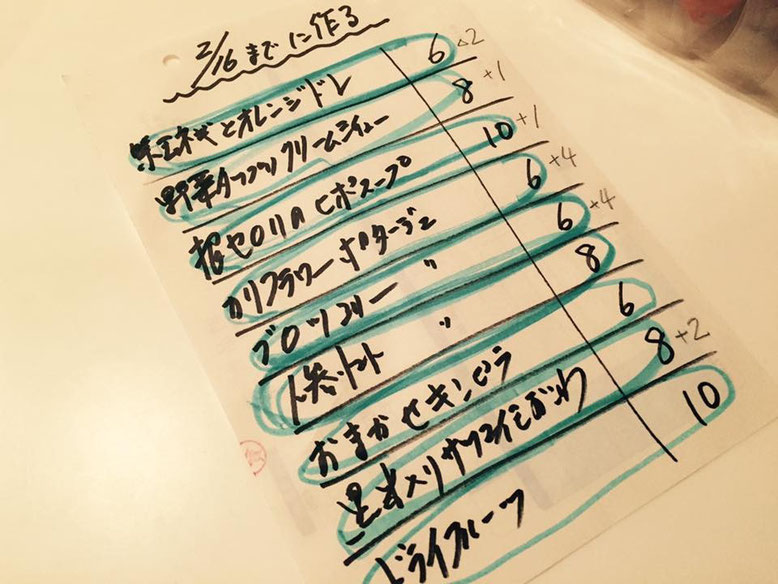 2/16までに作る
紫玉ネギとオレンジドレ 6 △2
野菜タップリクリームシチュー 8 +1
根セロリのヒポスープ 10 +1
カリフラワーポタージュ 6 +4
ブロッコリー 〃 6 +4
人参トマト 〃 8
おまかせキンピラ 6
黒米入りサツマイモおかわ 8 +2
ドライフルーツ 10